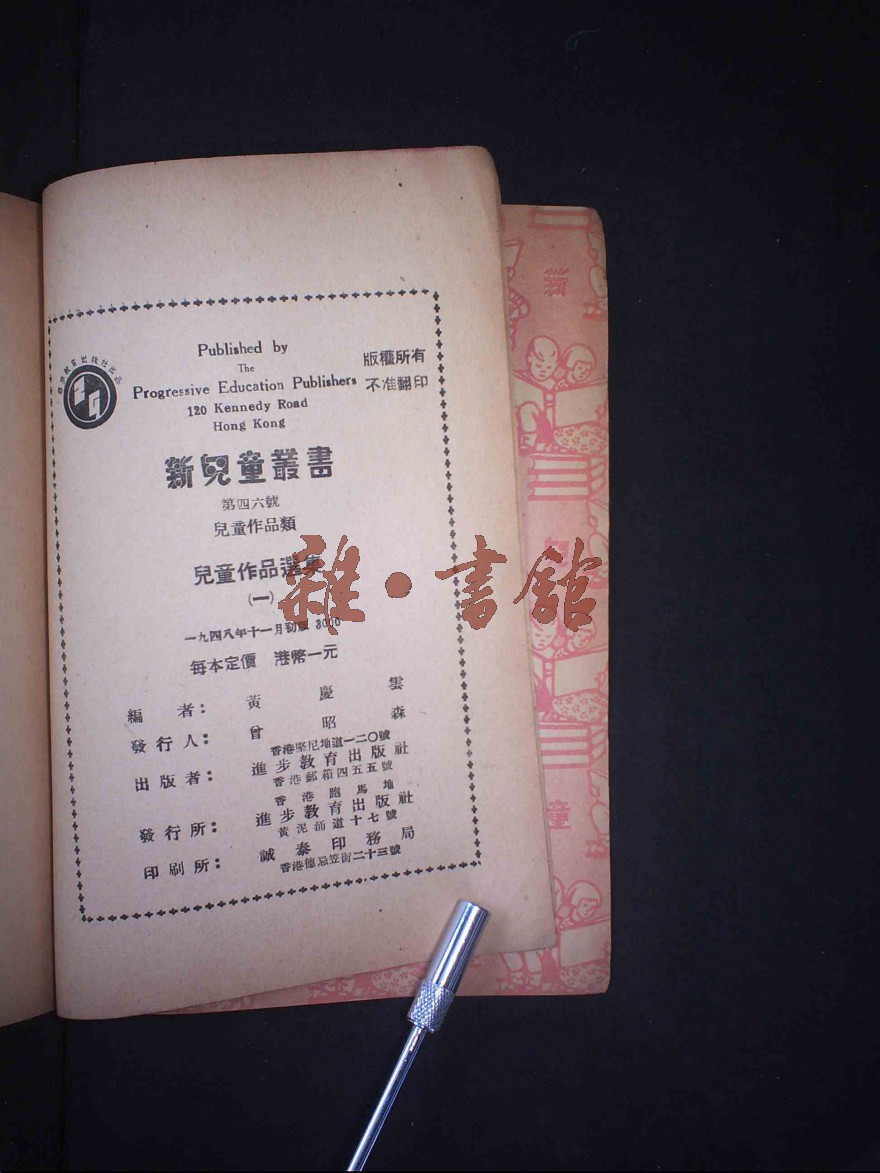 Published by
The
Progressive Education Publishers
120 Kennedy Road
Hong Kong
版權所有
不准翻印
新兒童叢書
第四六號
兒童作品類
兒童作品選集
(一)
一九四八年十一月初版 3000
每本定價 港幣一元
編者： 黃慶雲
發行人： 曾昭森
香港堅尼地道一二〇號
出版者： 進步教育出版社
香港郵箱四五五號
香港跑馬地
發行所： 進步教育出版社
黃泥涌道十七號
印刷所： 誠泰印務局
香港德忌笠街二十三號
雜·書館
新
童